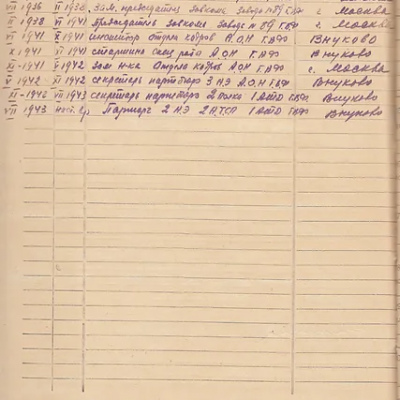 VII 1936 VI 1938 зам. председатель завкома завода № 84 ГВФ г. Москва
VI 1938 VI 1941 Председатель завкома завода № 84 ГВФ г. Москва
VI 1941 X 1941 инспектор отдела кадров А.О.Н ГВФ Внуково
X 1941 XI 1941 старшина спец. роты А.О.Н Г.ВФ Внуково
XI-1941 V 1942 Зам. н-ка Отдела кадров АОН Г.ВФ г. Москва
V 1942 XI 1942 секретарь партбюро 3 АЭ А.О.Н ГВФ Внуково
XI-1942 VII 1943 секретарь партбюро 2 полка 1 АТД ГВФ Внуково
VII 1943 Парторг 2 АЭ 2 АТП 1 АТД ГВФ Внуково